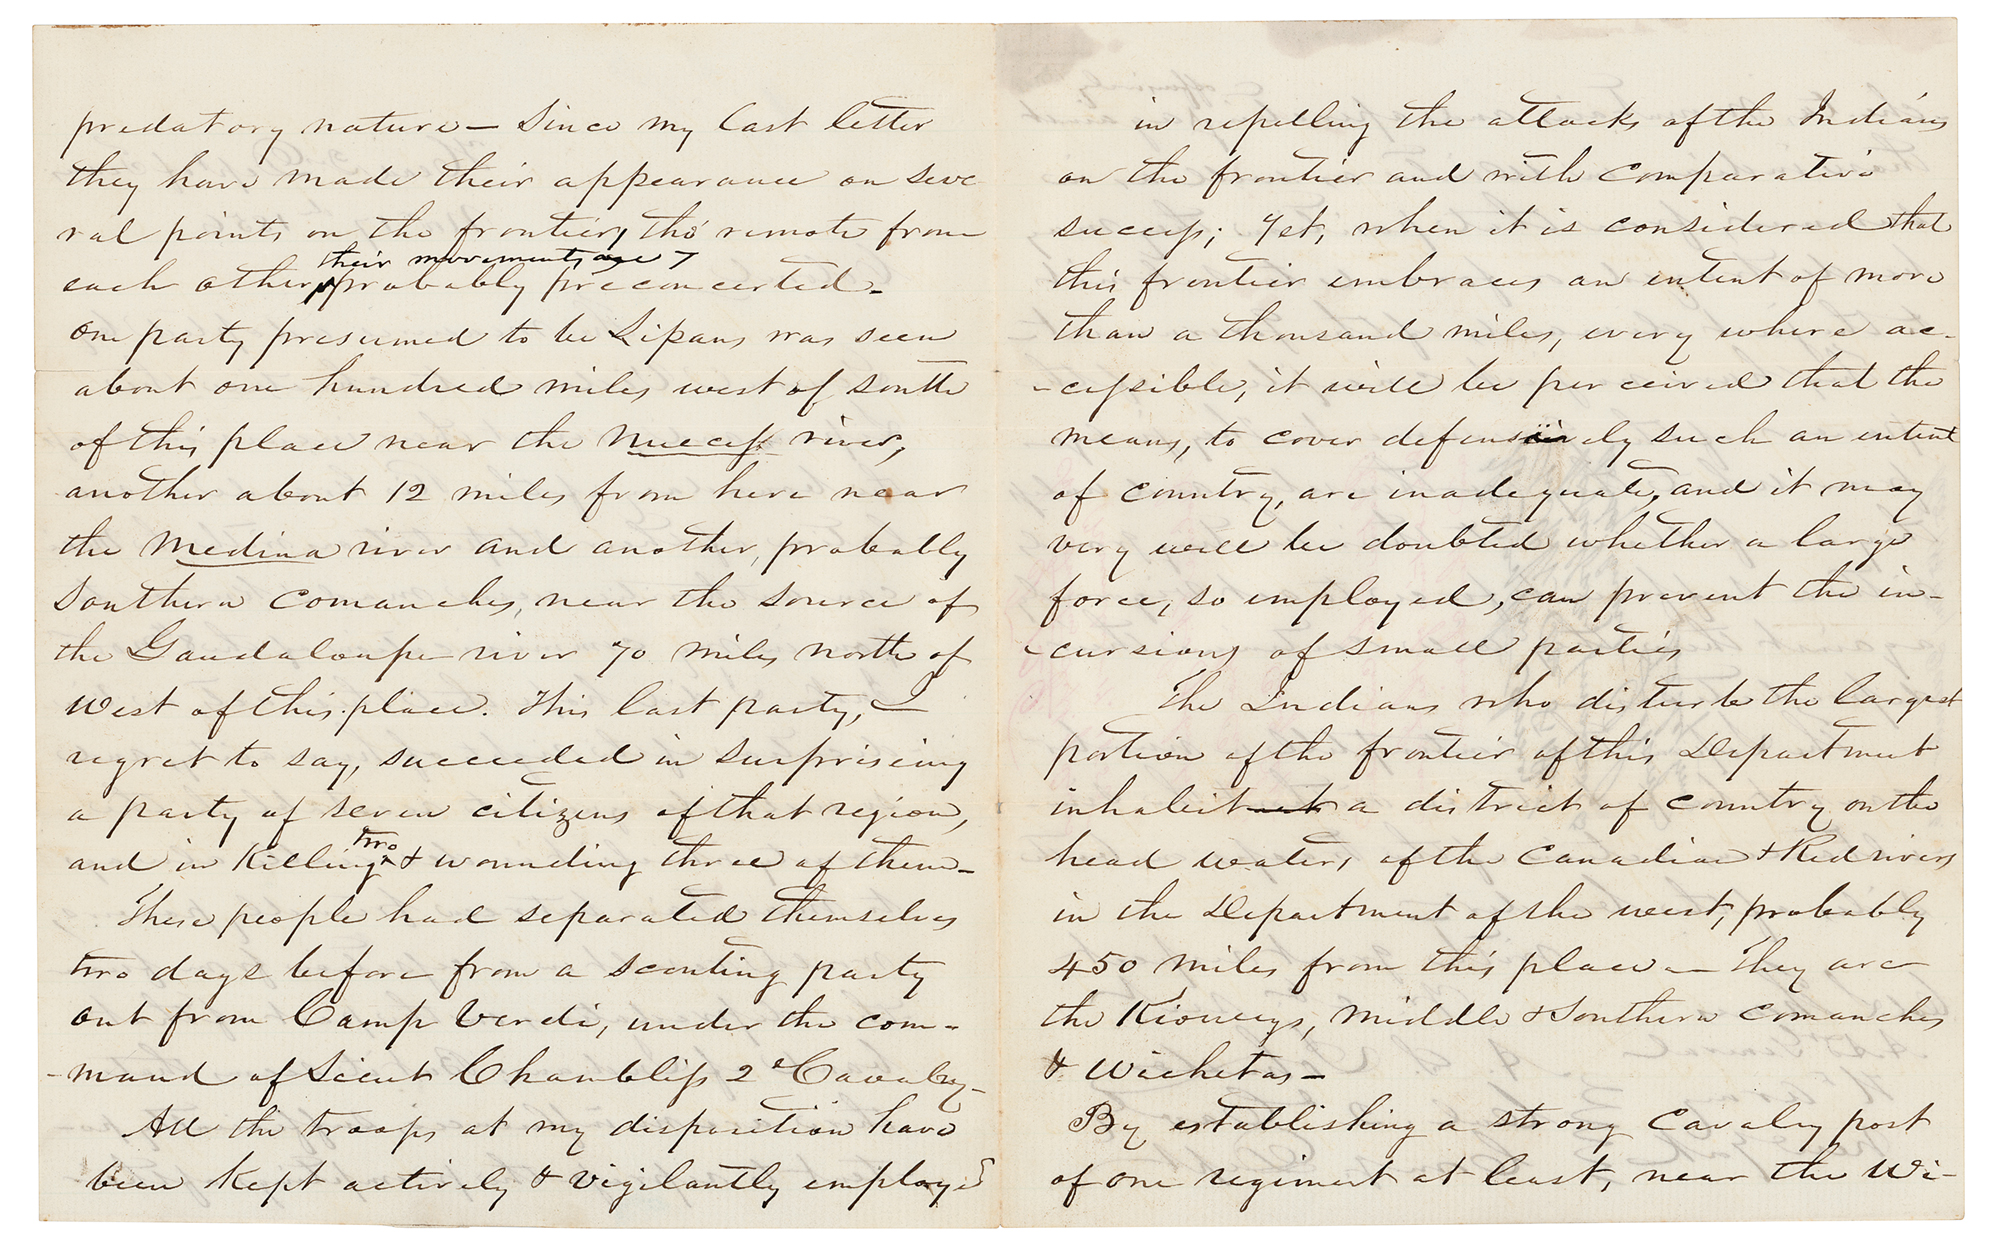 predatory nature — Since my last letter
they have made their appearance on seve
ral points on the frontier, tho' remote from
their movements are
each other, probably preconcerted. —
One party presumed to be Lipans was seen
about one hundred miles west of south
of this place near the Nuecess river,
another about 12 miles from here near
the Medina river and another, probably
Southern Comanches, near the source of
the Gaudaloupe river 70 miles north of
West of this place. This last party, I
regret to say, succeeded in surprising
a party of seven citizens of that region,
two
and in killing & wounding three of them —
These people had separated themselves
two days before from a scouting party
out from Camp Verdi, under the com-
-mand of Lieut Chambliss 2d Cavalry —
All the troops at my disposition have
been kept actively & vigilantly employed
in repelling the attacks of the Indians
on the frontier and with comparative
success; Yet, when it is considered that
this frontier embraces an extent of more
than a thousand miles, every where ac-
-cessible, it will be perceived that the
means, to cover defensively such an extent
of country, are inadequate, and it may
very well be doubted whether a large
force, so employed, can prevent the in-
-cursions of small parties
The Indians who disturb the largest
portion of the frontier of this Department
inhabit a district of country on the
head waters of the Canadian & Red rivers
in the Department of the west, probably
450 miles from this place — They are
the Kioways, Middle & Southern Comanches
& Wichetas —
By establishing a strong Cavalry post
of one regiment at least, near the Wi-